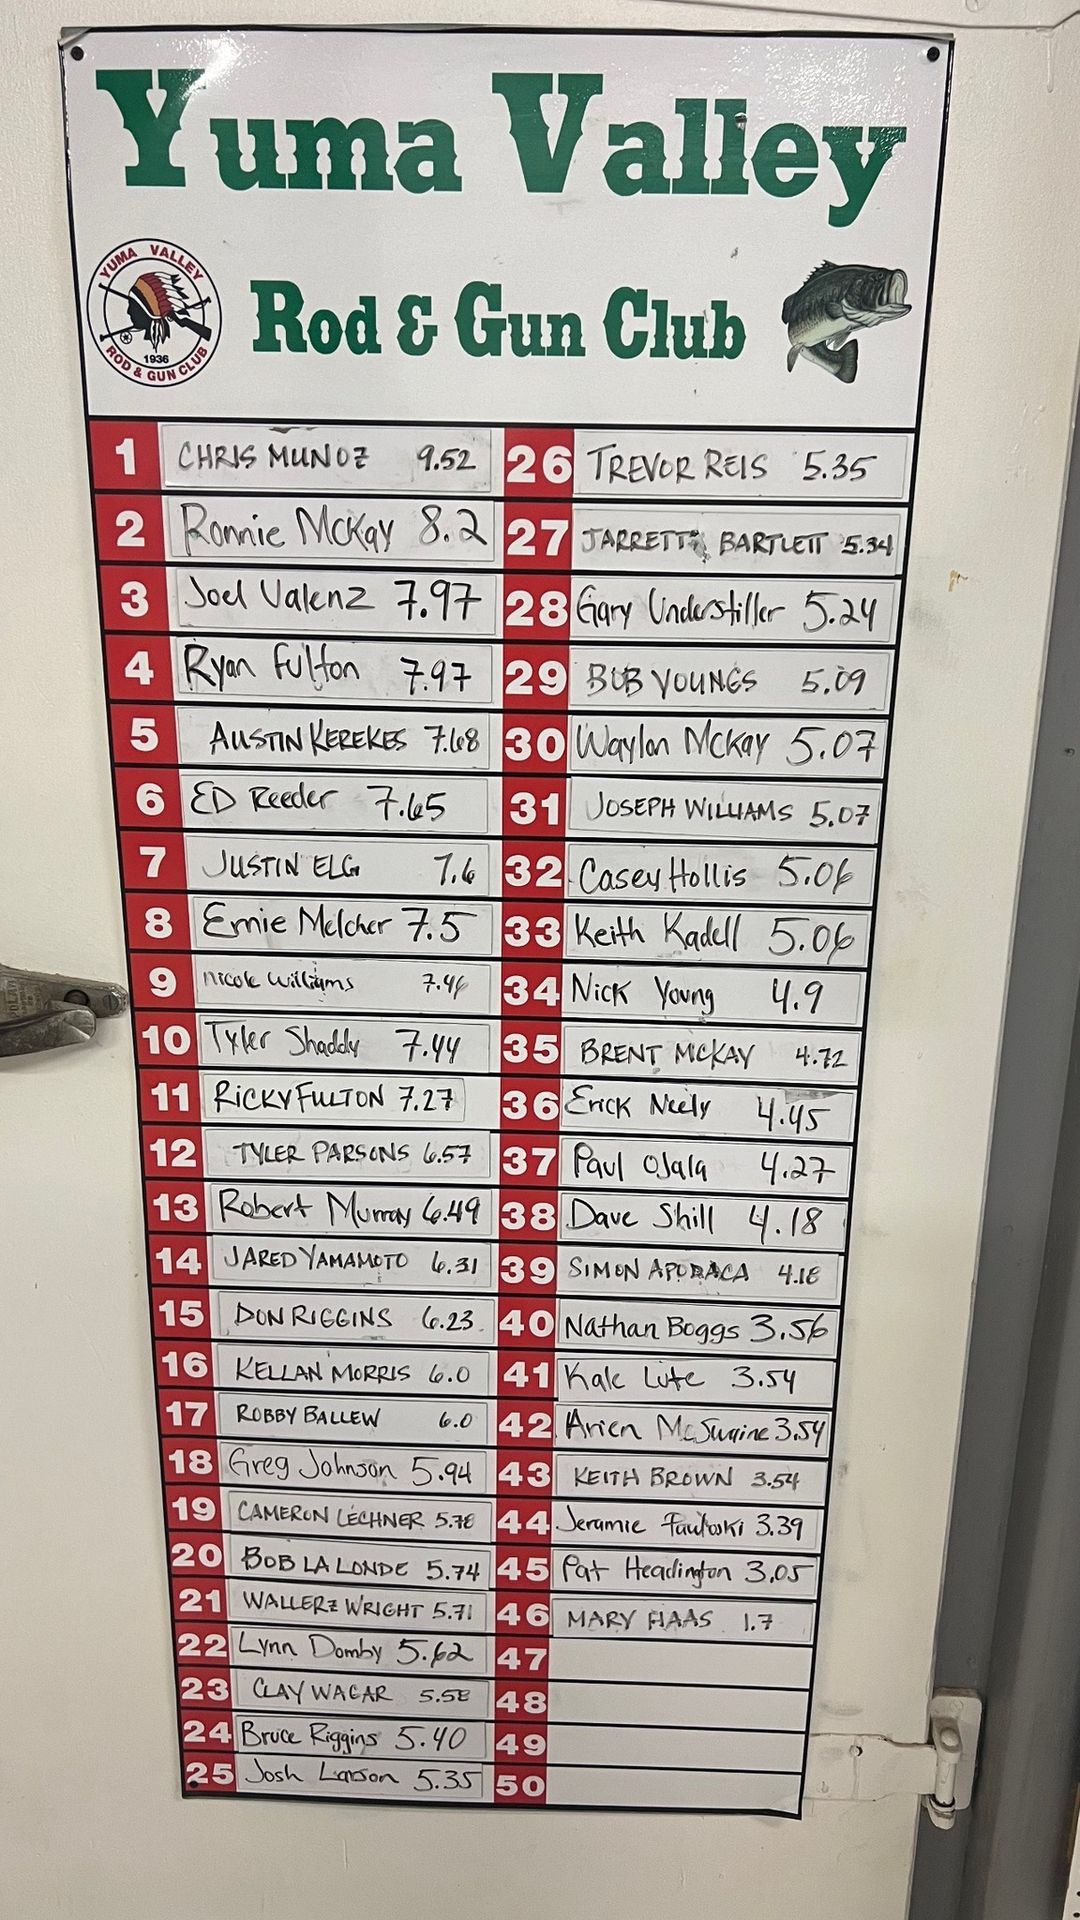 Yuma Valley
YUMA VALLEY
1936
ROD & GUN CLUB
Rod & Gun Club
1 CHRIS MUNOZ 9.52
2 Ronnie McKay 8.2
3 Joel Valenz 7.97
4 Ryan Fulton 7.97
5 AUSTIN KEREKES 7.68
6 ED Reeder 7.65
7 JUSTIN ELG 7.6
8 Ernie Melcher 7.5
9 Nicole Williams 7.46
10 Tyler Shaddy 7.44
11 RICKY FULTON 7.27
12 TYLER PARSONS 6.57
13 Robert Murray 6.49
14 JARED YAMAMOTO 6.31
15 DON RIGGINS 6.23
16 KELLAN MORRIS 6.0
17 ROBBY BALLEW 6.0
18 Greg Johnson 5.94
19 CAMERON LECHNER 5.78
20 BOB LA LONDE 5.74
21 WALLERZ WRIGHT 5.71
22 Lynn Domby 5.62
23 CLAY WAGAR 5.58
24 Bruce Riggins 5.40
25 Josh Larson 5.35
26 TREVOR REIS 5.35
27 JARRETT BARTLETT 5.34
28 Gary Understiller 5.24
29 BOB YOUNGS 5.09
30 Waylon McKay 5.07
31 JOSEPH WILLIAMS 5.07
32 Casey Hollis 5.06
33 Keith Kadell 5.06
34 Nick Young 4.9
35 BRENT MCKAY 4.72
36 Erick Neely 4.45
37 Paul Ojala 4.27
38 Dave Shill 4.18
39 SIMON APODACA 4.18
40 Nathan Boggs 3.56
41 Kale Lute 3.54
42 Arien McSwaine 3.54
43 KEITH BROWN 3.54
44 Jeramie 3.39
45 Pat Headington 3.05
46 MARY HAAS 1.7
47
48
49
50